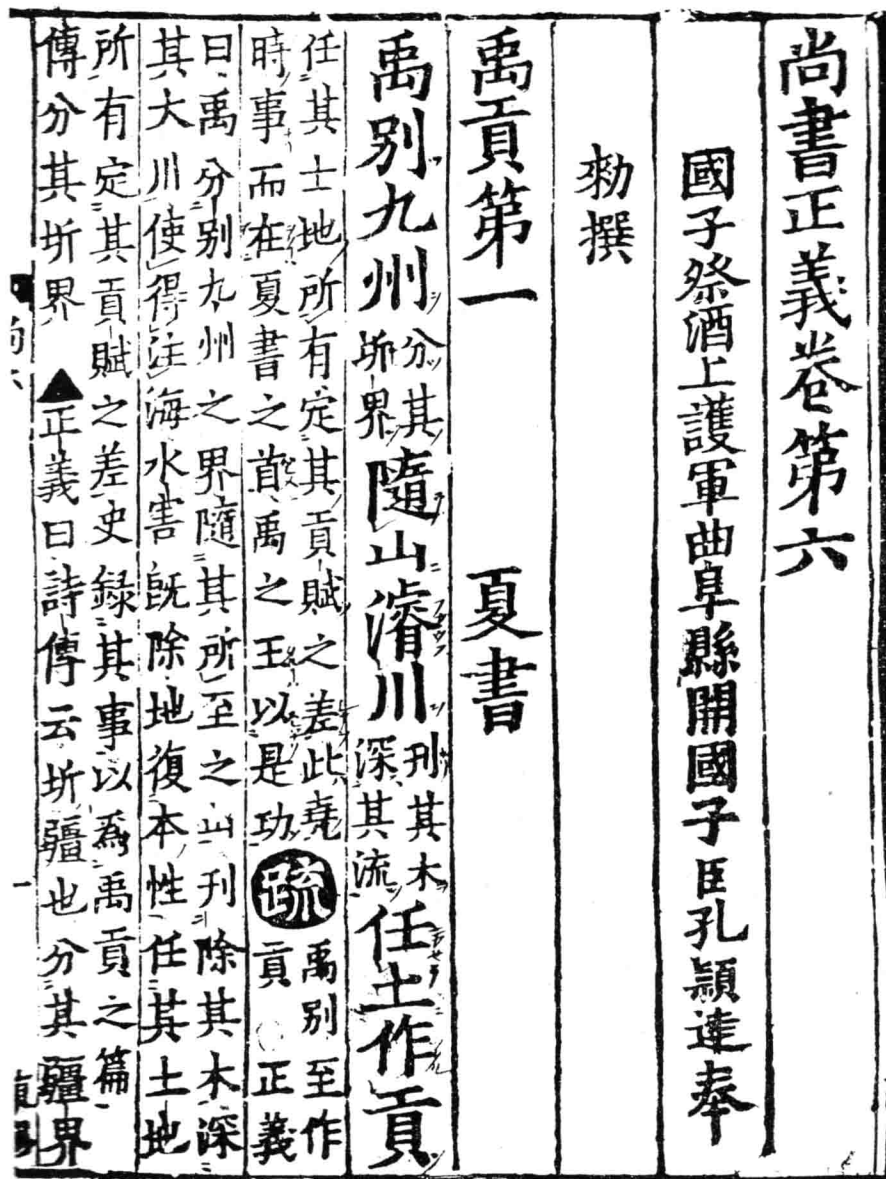 尚書正義卷第六
國子祭酒上護軍曲阜縣開國子臣孔穎達奉
勑撰
禹貢第一 夏書
禹別九州分其圻界隨山濬川刊其木深其流任土作貢
任其土地所有定其貢賦之差此堯
時事而在夏書之首禹之王以是功
疏
禹別至作
貢 正義
曰禹分別九州之界隨其所至之山刊除其木深
其大川使得注海水害旣除地復本性任其土地
所有定其貢賦之差史錄其事以爲禹貢之篇
傳分其圻界 ▲正義曰詩傳云圻疆也分其疆界
一